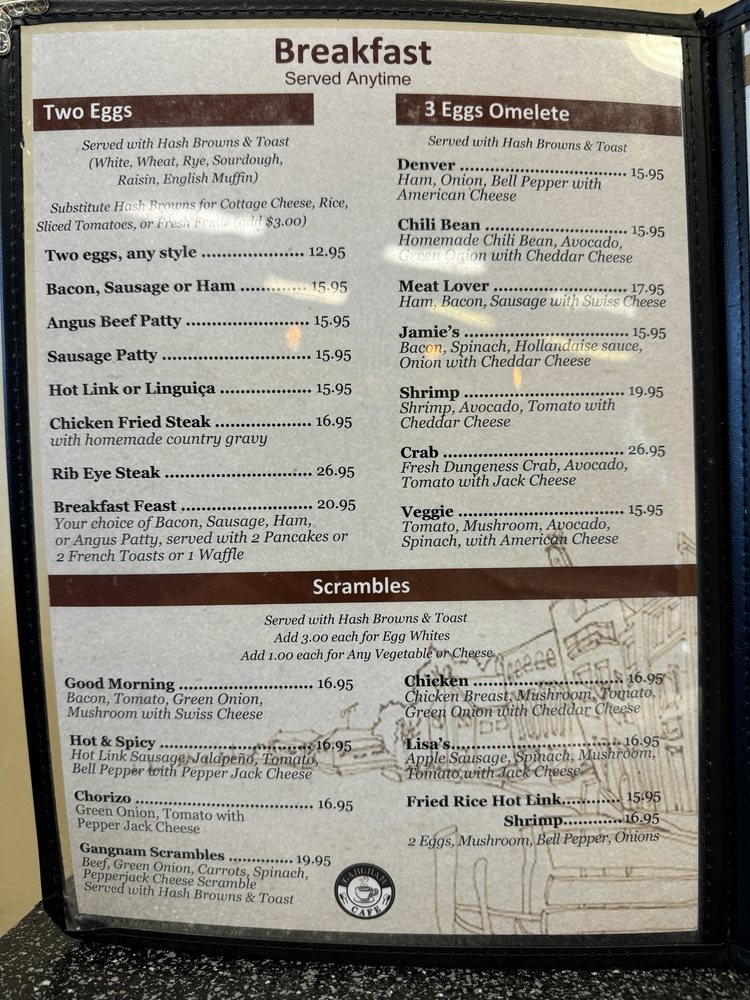 Breakfast
Served Anytime
Two Eggs
Served with Hash Browns & Toast
(White, Wheat, Rye, Sourdough,
Raisin, English Muffin)
Substitute Hash Browns for Cottage Cheese, Rice,
Sliced Tomatoes, or Fresh Fruits (add $3.00)
Two eggs, any style ........................ 12.95
Bacon, Sausage or Ham ............. 15.95
Angus Beef Patty ........................... 15.95
Sausage Patty ................................ 15.95
Hot Link or Linguiça .................... 15.95
Chicken Fried Steak ..................... 16.95
with homemade country gravy
Rib Eye Steak ................................ 26.95
Breakfast Feast ............................. 20.95
Your choice of Bacon, Sausage, Ham,
or Angus Patty, served with 2 Pancakes or
2 French Toasts or 1 Waffle
3 Eggs Omelete
Served with Hash Browns & Toast
Denver .................................... 15.95
Ham, Onion, Bell Pepper with
American Cheese
Chili Bean ............................... 15.95
Homemade Chili Bean, Avocado,
Green Onion with Cheddar Cheese
Meat Lover .............................. 17.95
Ham, Bacon, Sausage with Swiss Cheese
Jamie's .................................... 15.95
Bacon, Spinach, Hollandaise sauce,
Onion with Cheddar Cheese
Shrimp .................................... 19.95
Shrimp, Avocado, Tomato with
Cheddar Cheese
Crab ........................................ 26.95
Fresh Dungeness Crab, Avocado,
Tomato with Jack Cheese
Veggie ..................................... 15.95
Tomato, Mushroom, Avocado,
Spinach, with American Cheese
Scrambles
Served with Hash Browns & Toast
Add 3.00 each for Egg Whites
Add 1.00 each for Any Vegetable or Cheese
Good Morning ............................. 16.95
Bacon, Tomato, Green Onion,
Mushroom with Swiss Cheese
Hot & Spicy .................................. 16.95
Hot Link Sausage, Jalapeño, Tomato,
Bell Pepper with Pepper Jack Cheese
Chorizo ........................................ 16.95
Green Onion, Tomato with
Pepper Jack Cheese
Gangnam Scrambles .............. 19.95
Beef, Green Onion, Carrots, Spinach,
Pepperjack Cheese Scramble
Served with Hash Browns & Toast
Chicken .................................. 16.95
Chicken Breast, Mushroom, Tomato,
Green Onion with Cheddar Cheese
Lisa's ...................................... 16.95
Apple Sausage, Spinach, Mushroom,
Tomato, with Jack Cheese
Fried Rice Hot Link ............. 15.95
Shrimp .................... 16.95
2 Eggs, Mushroom, Bell Pepper, Onions
CAFE